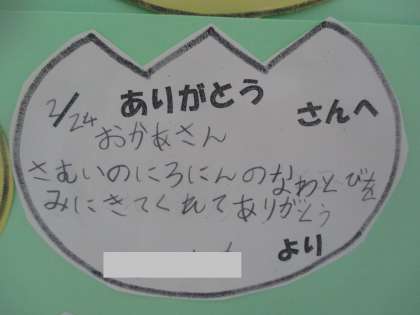 2/24 ありがとう
さんへ
おかあさん
さむいのにろにんのなわとびを
みにきてくれてありがとう
より